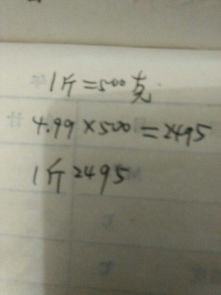 1斤=500克
4.99×500=2495
1斤2495